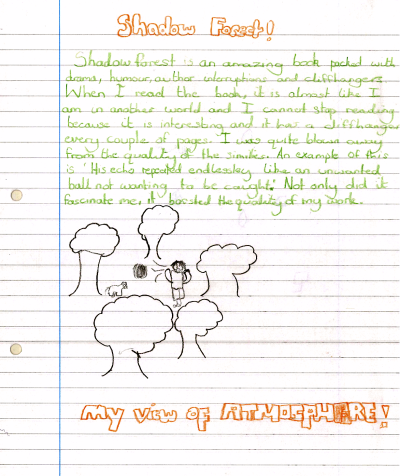 Shadow Forest!
Shadow forest is an amazing book packed with
drama, humour, author interruptions and cliffhangers.
When I read the book, it is almost like I
am in another world and I cannot stop reading
because it is interesting and it has a cliffhanger
every couple of pages. I was quite blown away
from the quality of the similes. An example of this
is 'His echo repeated endlessley like an unwanted
ball not wanting to be caught.' Not only did it
fascinate me, it boosted the quality of my work.
my view of ATMOSPHERE!